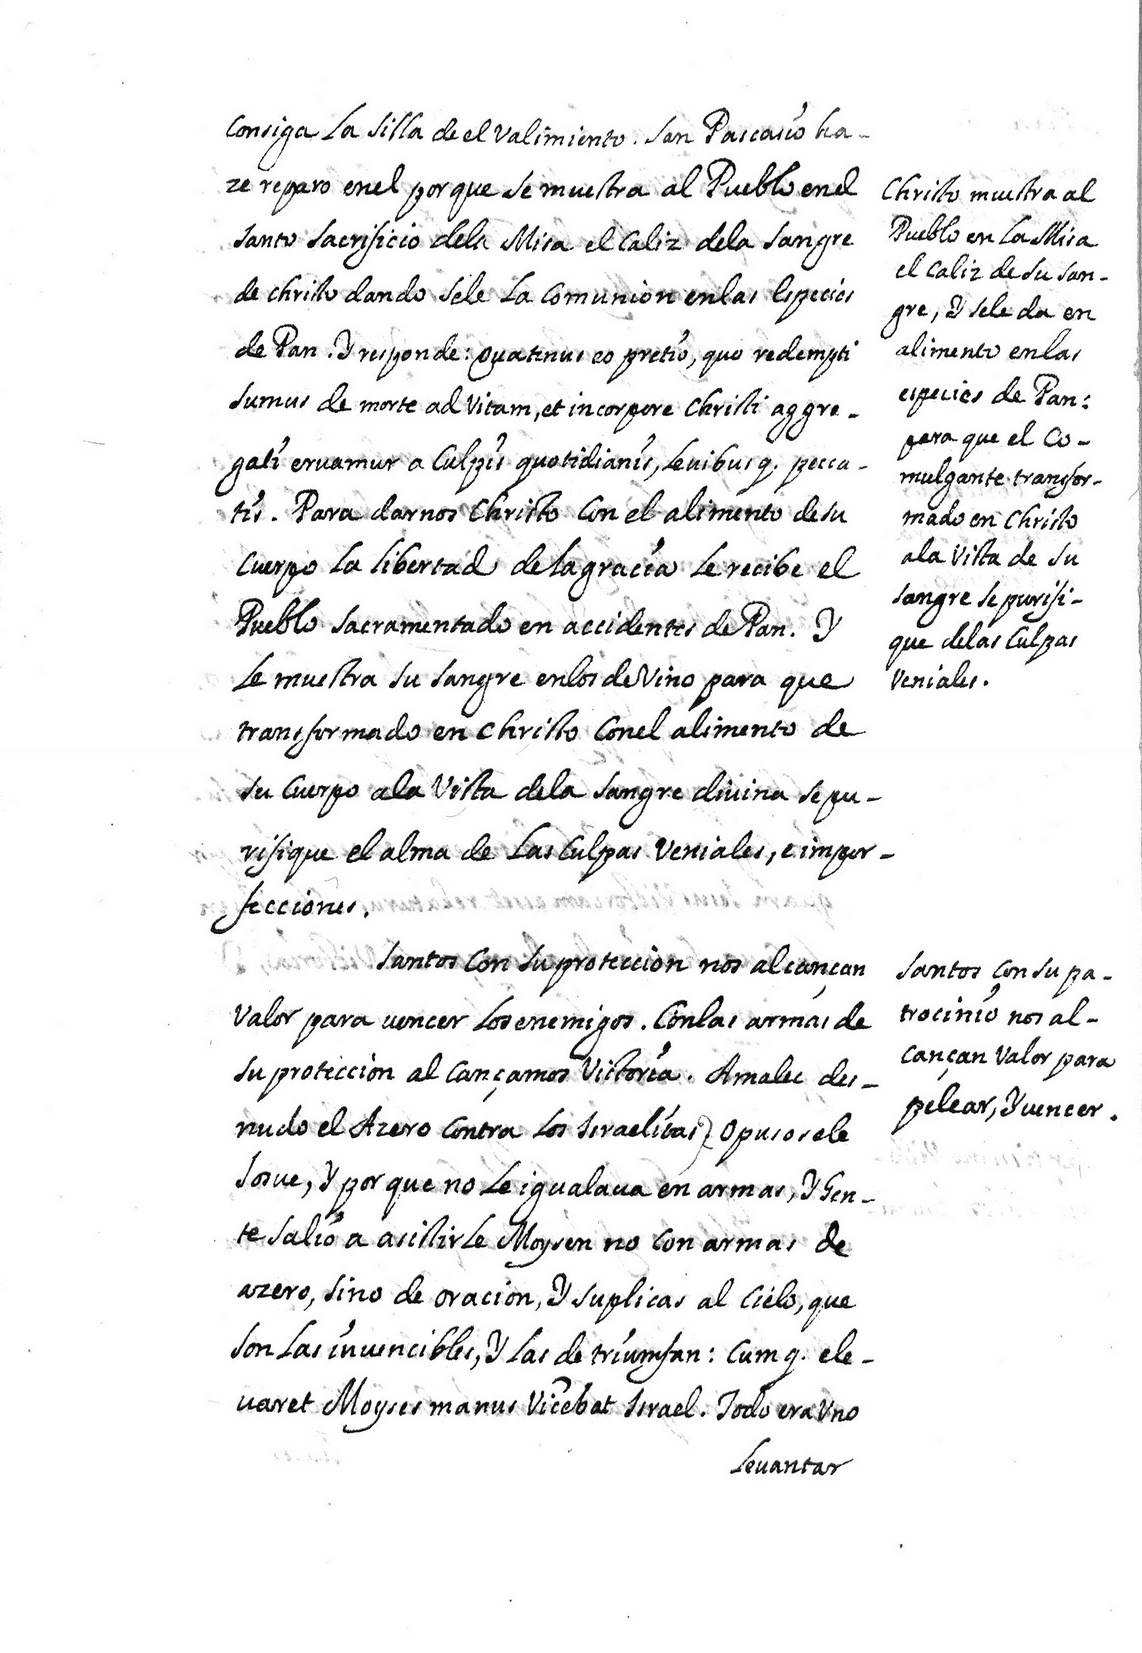 Consiga La Silla de el Valimiento. San Pascasio ha-
ze reparo enel porque se muestra al Pueblo enel
Santo Sacrificio dela Misa el Caliz dela Sangre
de Christo dando sele La Comunion enlas Especies
de Pan. Y responde: Quatinus eo pretio, quo redempti
sumus de morte ad Vitam, et in corpore Christi aggre-
gati eruamur a Culpis quotidianis, Leuibusq. pecca-
tis. Para darnos Christo Con el alimento de su
Cuerpo La libertad de la gracia Le recibe el
Pueblo Sacramentado en accidentes de Pan. Y
Le muestra su Sangre enlos de Vino para que
transformado en Christo Conel alimento de
su Cuerpo ala Vista dela Sangre diuina se pu-
rifique el alma de Las Culpas Veniales, e imper-
fecciones.
Santos Con su proteccion nos alcançan
Valor para uencer Los enemigos. Conlas armas de
su proteccion al Cançamos Victoria. Amalec des-
nudo el Azero Contra Los Israelitas, Opusosele
Iosue, Y por que no Le igualaua en armas, Y Gen-
te Salio a asistirle Moysen no Con armas de
azero, sino de oracion, Y suplicas al Cielo, que
son Las inuencibles, Y Las de triumfan: Cumq. ele-
uaret Moyses manus Vicebat Israel. Todo era Vno
Leuantar
Christo muestra al
Pueblo en La Misa
el Caliz de su San-
gre, Y sele da en
alimento enlas
especies de Pan:
para que el Co-
mulgante transfor-
mado en Christo
ala Vista de su
Sangre se purifi-
que delas Culpas
Veniales.
Santos Con su pa-
trocinio nos al-
cançan Valor para
pelear, Y uencer.